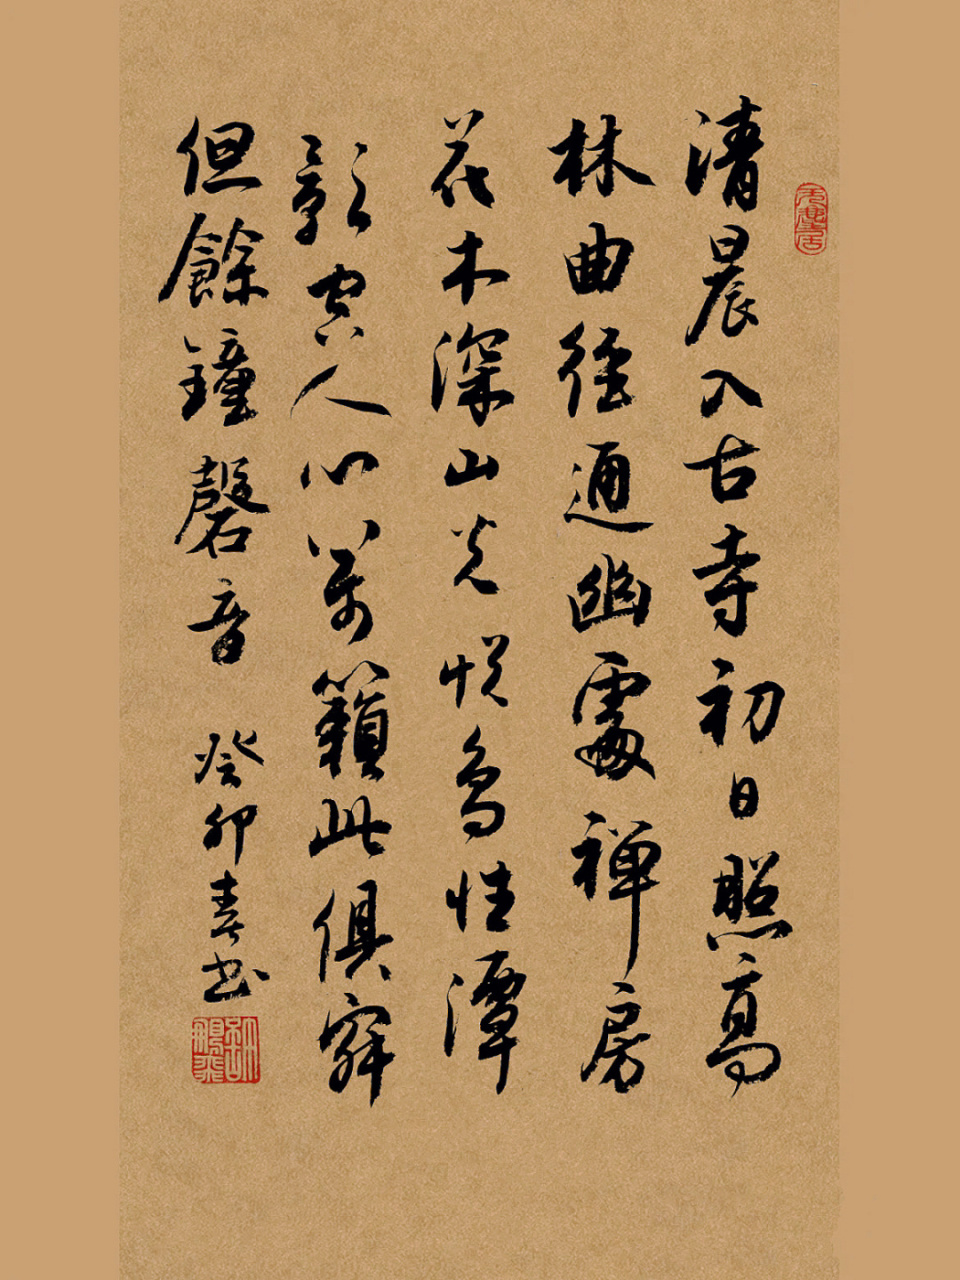 清晨入古寺初日照高
林曲徑通幽處禅房
花木深山光悦鳥性潭
影空人心萬籟此俱寂
但餘鐘磬音
癸卯春書